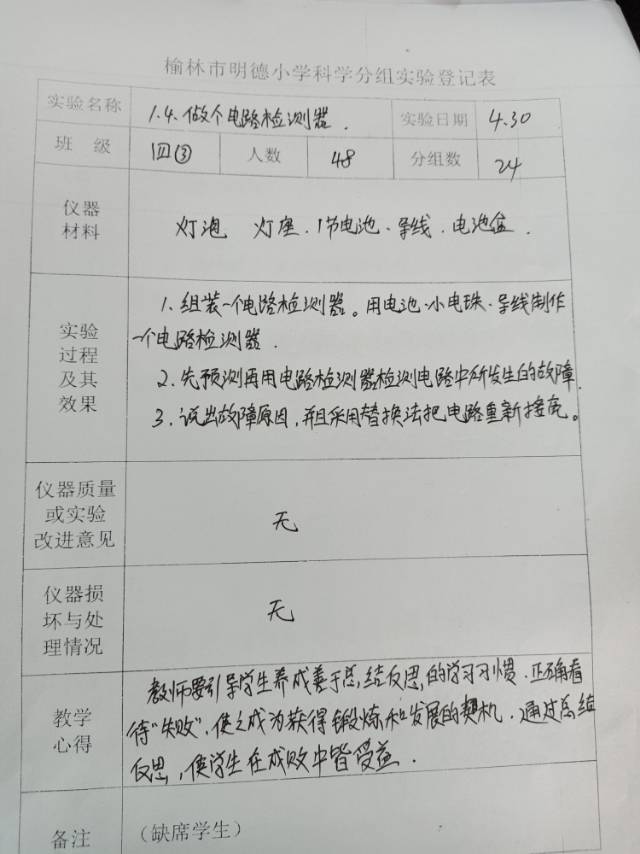 榆林市明德小学科学分组实验登记表
实验名称 1.4.做个电路检测器. 实验日期 4.30
班 级 四③ 人数 48 分组数 24
仪器
材料
灯泡 灯座.1节电池.导线.电池盒.
实验
过程
及其
效果
1.组装一个电路检测器。用电池.小电珠.导线制作
一个电路检测器.
2.先预测再用电路检测器检测电路中所发生的故障.
3.说出故障原因,并且采用替换法把电路重新接亮。
仪器质量
或实验
改进意见
无
仪器损
坏与处
理情况
无
教学
心得
教师要引导学生养成善于总结反思,的学习习惯.正确看
待"失败",使之成为获得锻炼和发展的契机.通过总结
反思,使学生在成败中皆受益.
备注 (缺席学生)